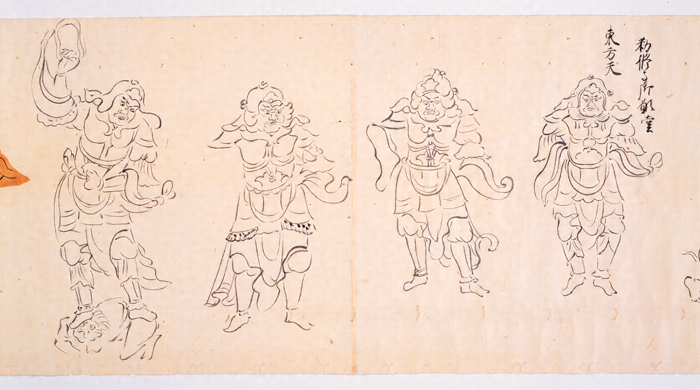 勧修寺御願堂
東方天